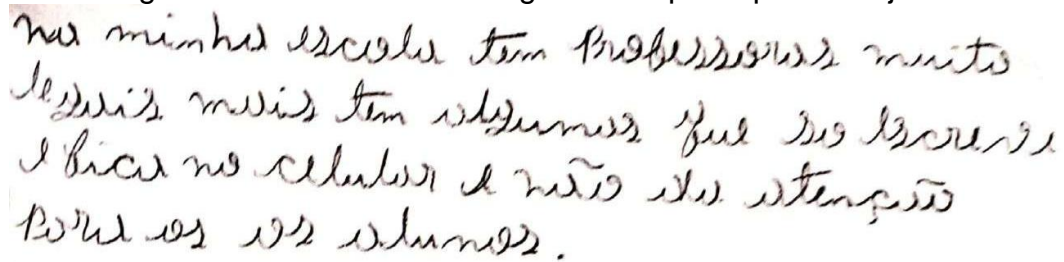 na minha escola tem Professoras muito
legais mais tem algumas que so escreve
e fica no celular e não da atenção
Para os os alunos.